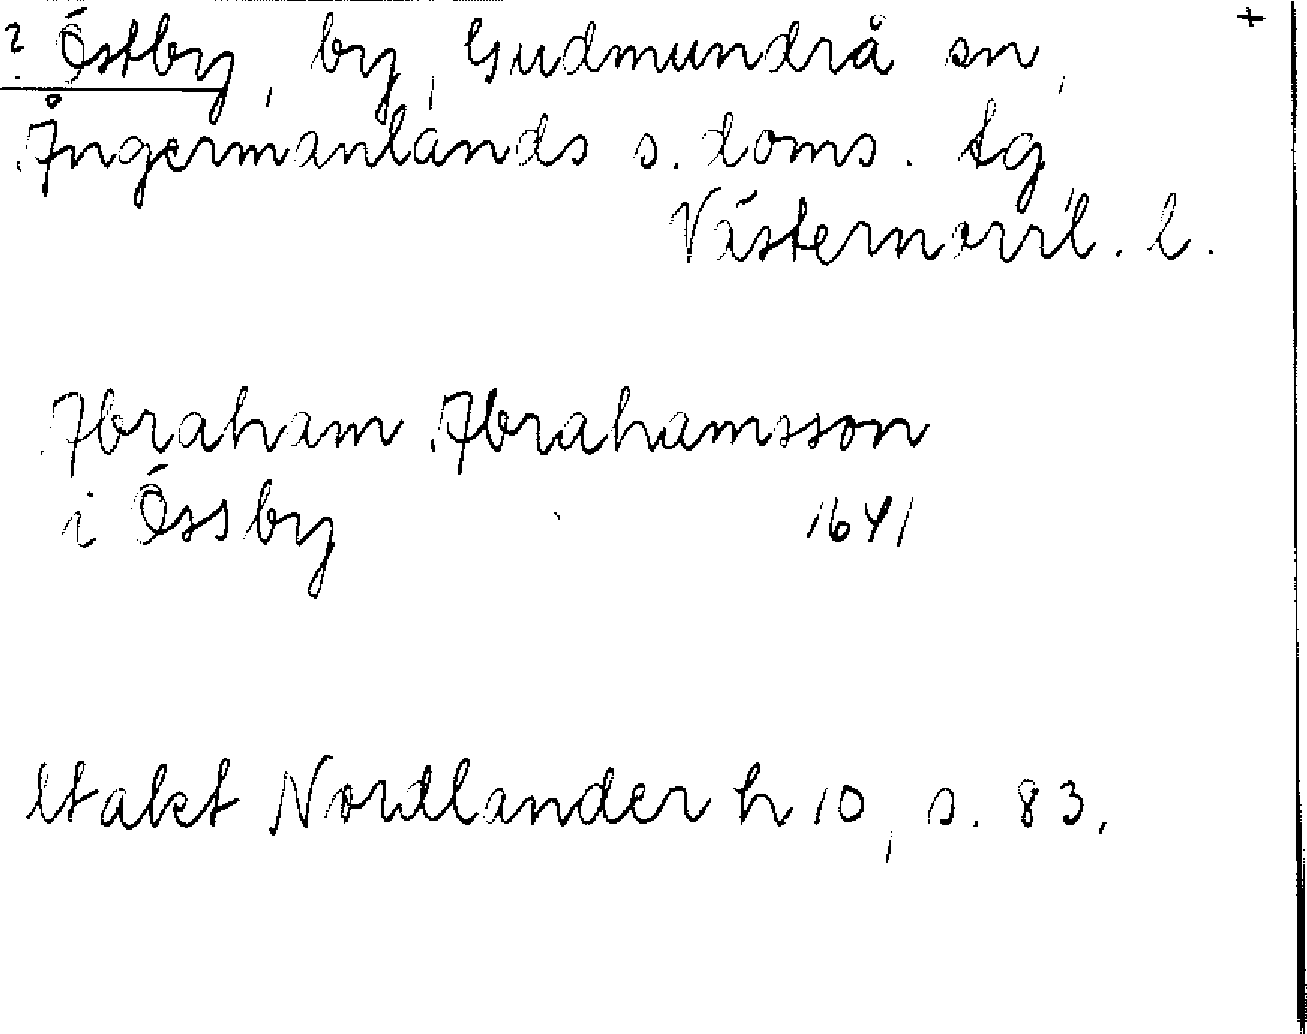 ? Östby, by, Gudmundrå sn, +
Ångermanlands s. doms. tg
Västernorrl. l.
Abraham Abrahamsson
i Össby 1641
Utakt Nordlander h 10, s. 83.